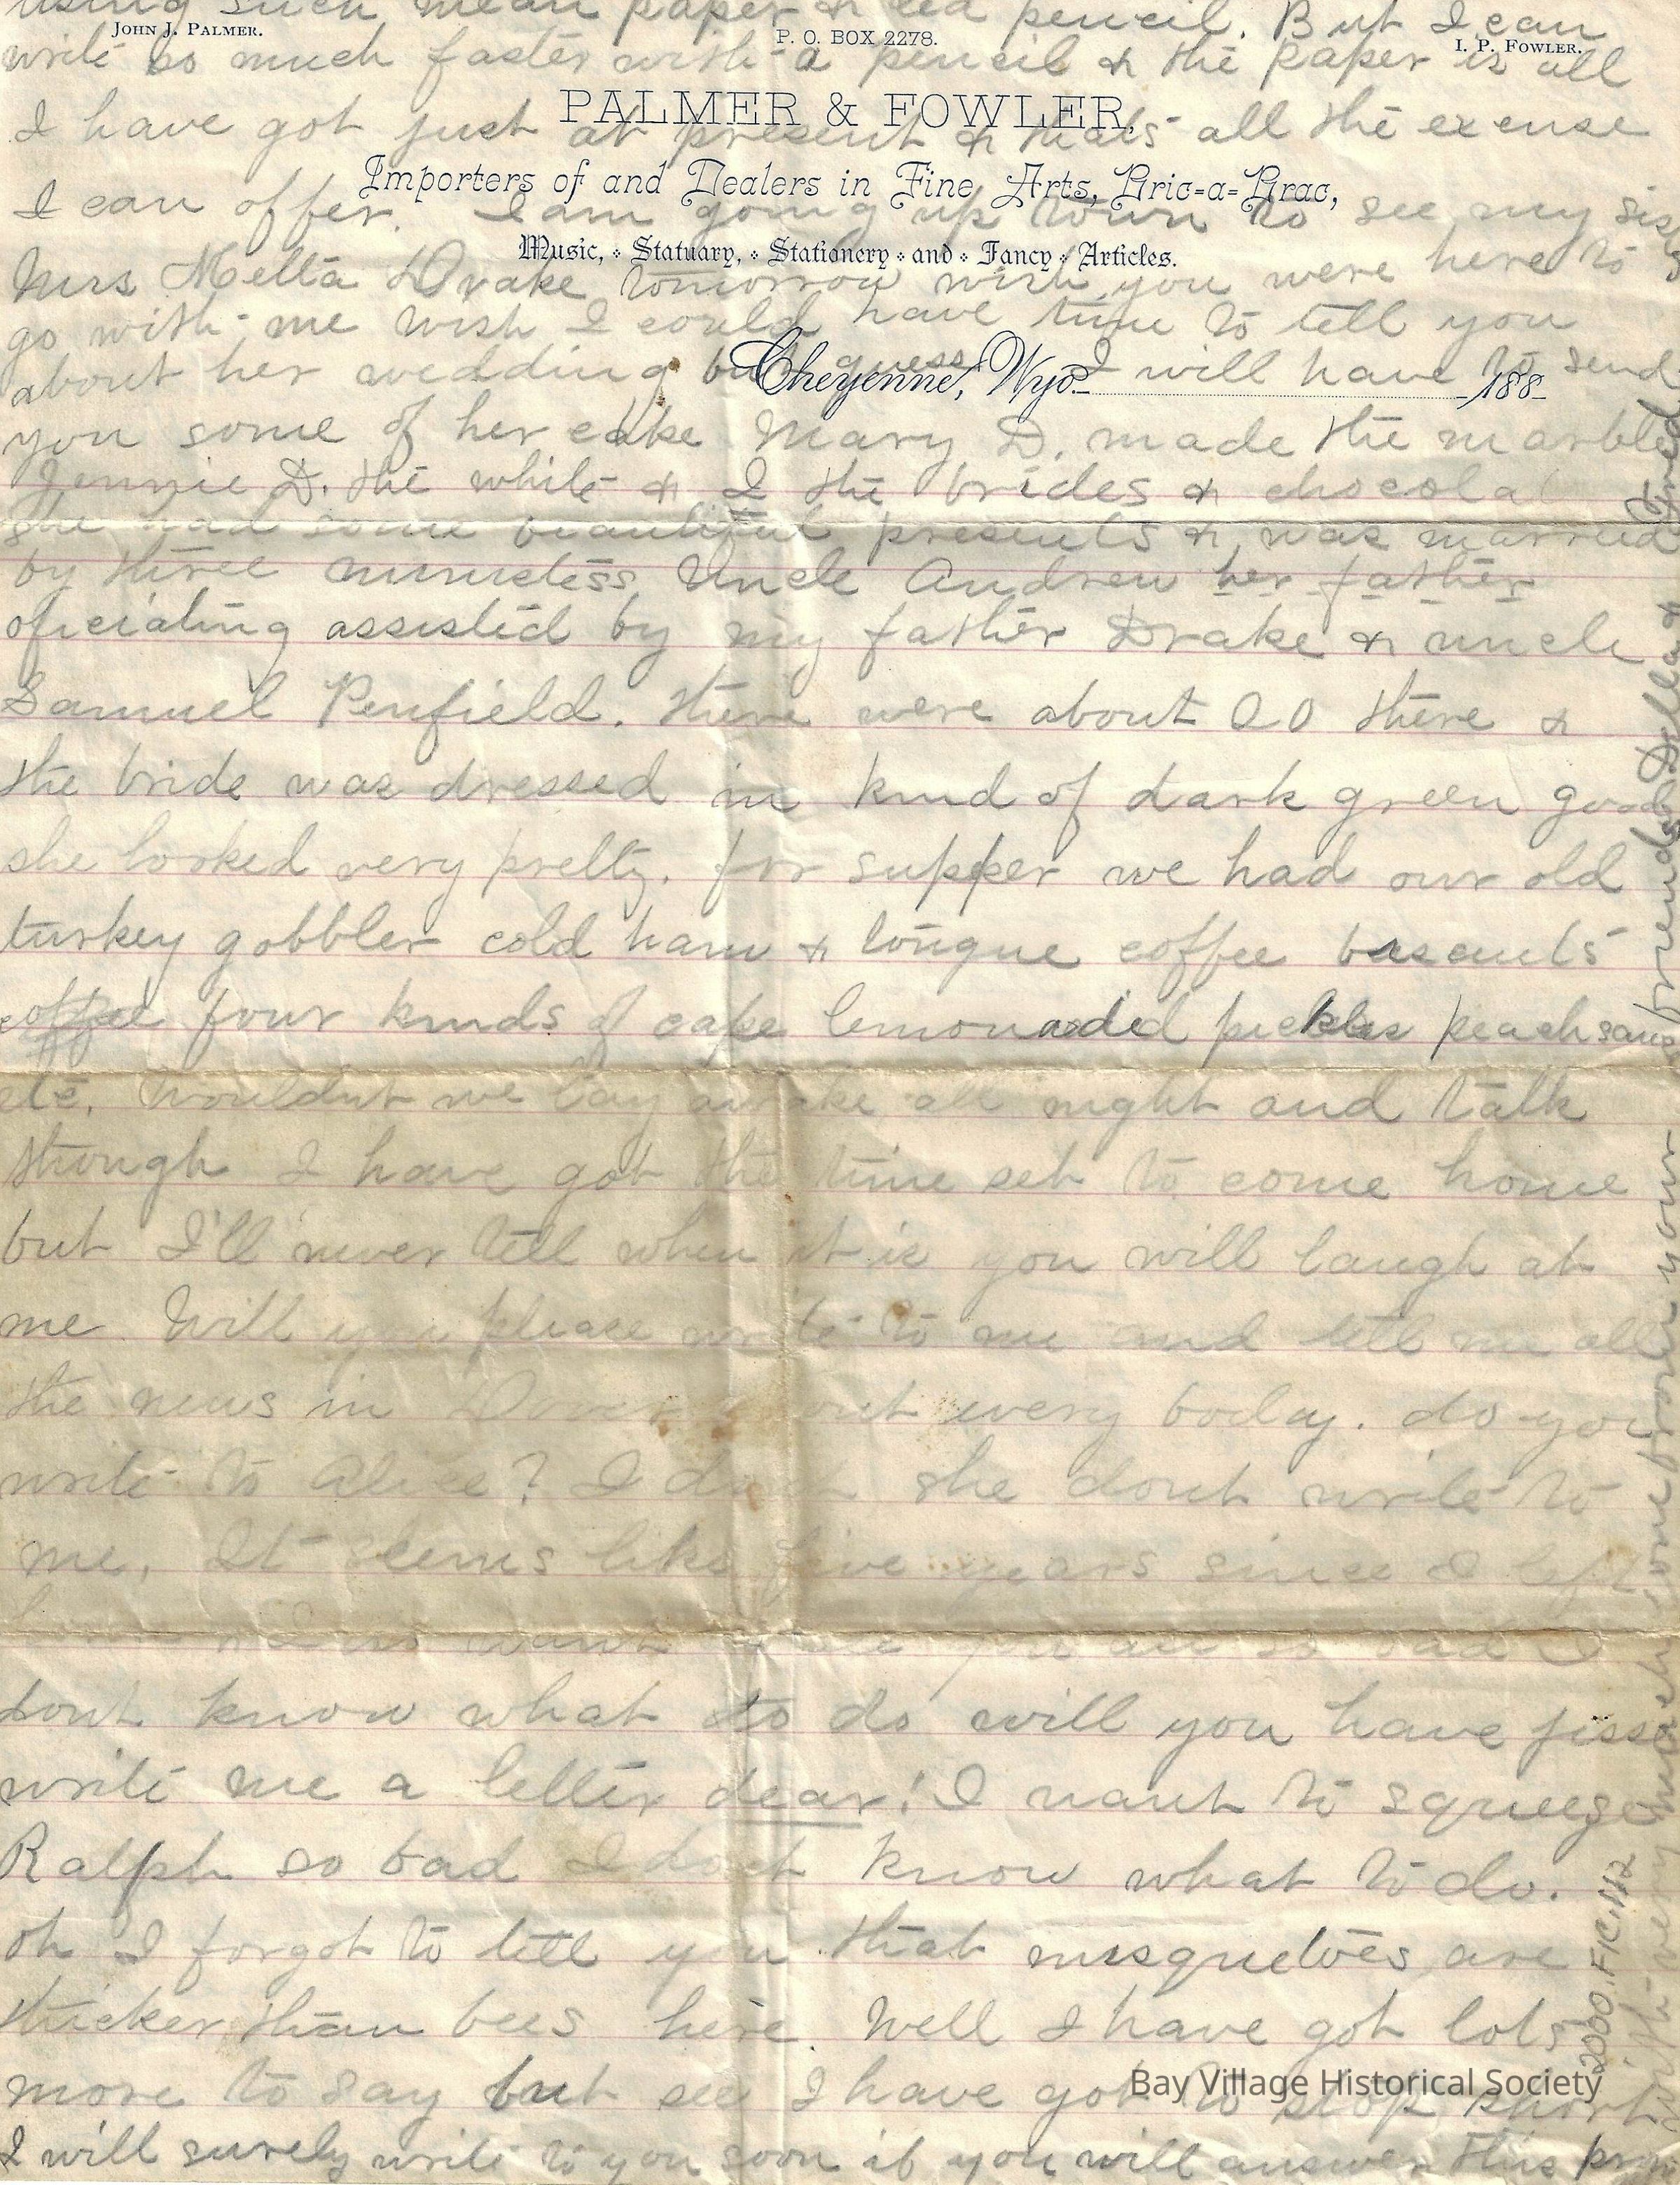 using such mean paper & led pencil. But I can
JOHN J. PALMER.
P. O. BOX 2278.
I. P. FOWLER.
write so much faster with a pencil & the paper is all
PALMER & FOWLER,
I have got just at present & thats all the excuse
Importers of and Dealers in Fine Arts, Bric-a-Brac,
I can offer. I am going up town to see my sis
Music, Statuary, Stationery and Fancy Articles.
Mrs Melta Drake tomorrow wish you were here to
go with me wish I could have time to tell you
about her wedding but guess I will have to send
Cheyenne, Wyo. 188
you some of her cake Mary D. made the marbled
Jennie D. the white & I the brides & chocolat
she had some beautiful presents & was married
by three ministess, Uncle Andrew her father
oficiating assisted by my father Drake & uncle
Samuel Penfield. there were about 20 there &
the bride was dressed in kind of dark green good
she looked very pretty. for supper we had our old
turkey gobbler cold ham & tongue coffee bascuits
coffee four kinds of cake lemonaded pickles peach sauce
etc. Wouldnt we lay awake all night and talk
though I have got the time set to come home
but I'll never tell when it is you will laugh at
me. Will you please write to me and tell me all
the news in Dover out every body. do you
write to Alice? I dont she dont write to
me. It seems like five years since I left
home want you all so bad I
dont know what to do will you have jisse
write me a letter dear! I want to squeeze
Ralph so bad I dont know what to do.
oh I forgot to tell you that musquetoes are
thicker than bees here. Well I have got lots
more to say but see I have got to stop short
I will surely write to you soon if you will answer this
with very much love from your friends Della &
2000.FIC.112
Bay Village Historical Society